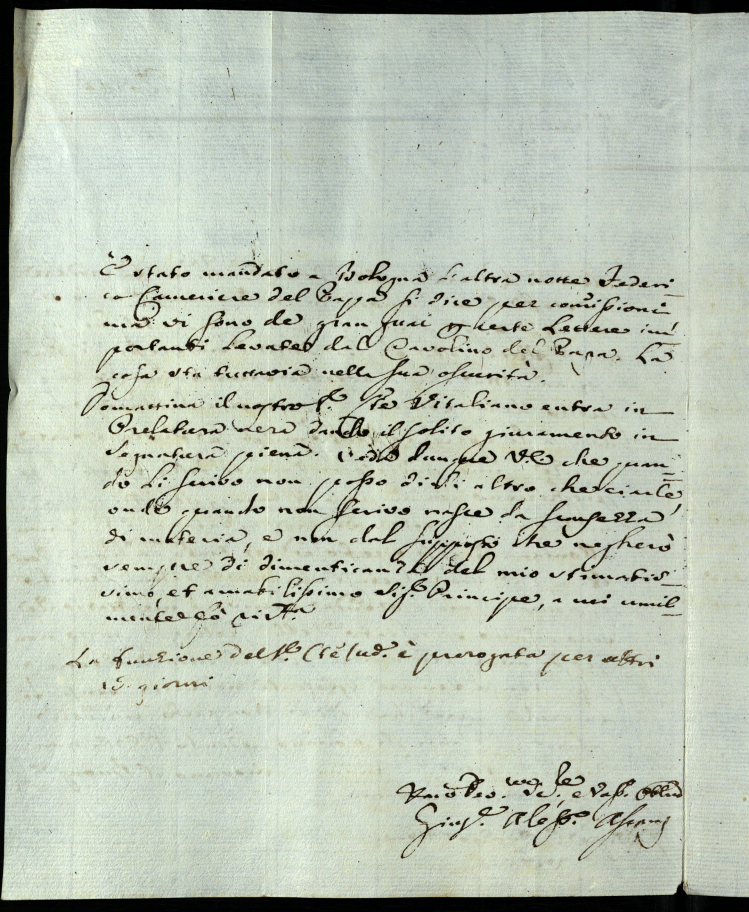 È stato mandato a Bologna l'altra notte Federi
co Cameriere del Papa si dice per comissioni
ma vi sono de gran guai per certe Lettere im
portanti levate dal Tavolino del Papa. La
cosa sta tuttavia nella sua oscurità.
Domattina il nostro Sr. Cte Vitaliano entra in
Prelatura dando il solito giuramento in
Segnatura piena. Vede dunque V.E. che quan
do li scrivo non posso dirli altro che ciarle,
onde quando non scrivo nasce da scarsezza
di materia, e non dal supposto che negherò
sempre di dimenticanza del mio stimatis
simo, et amabilissimo Sigr. Principe, a cui umil
mente
La funzione del Sr. Cte è prorogata per altri
15 giorni